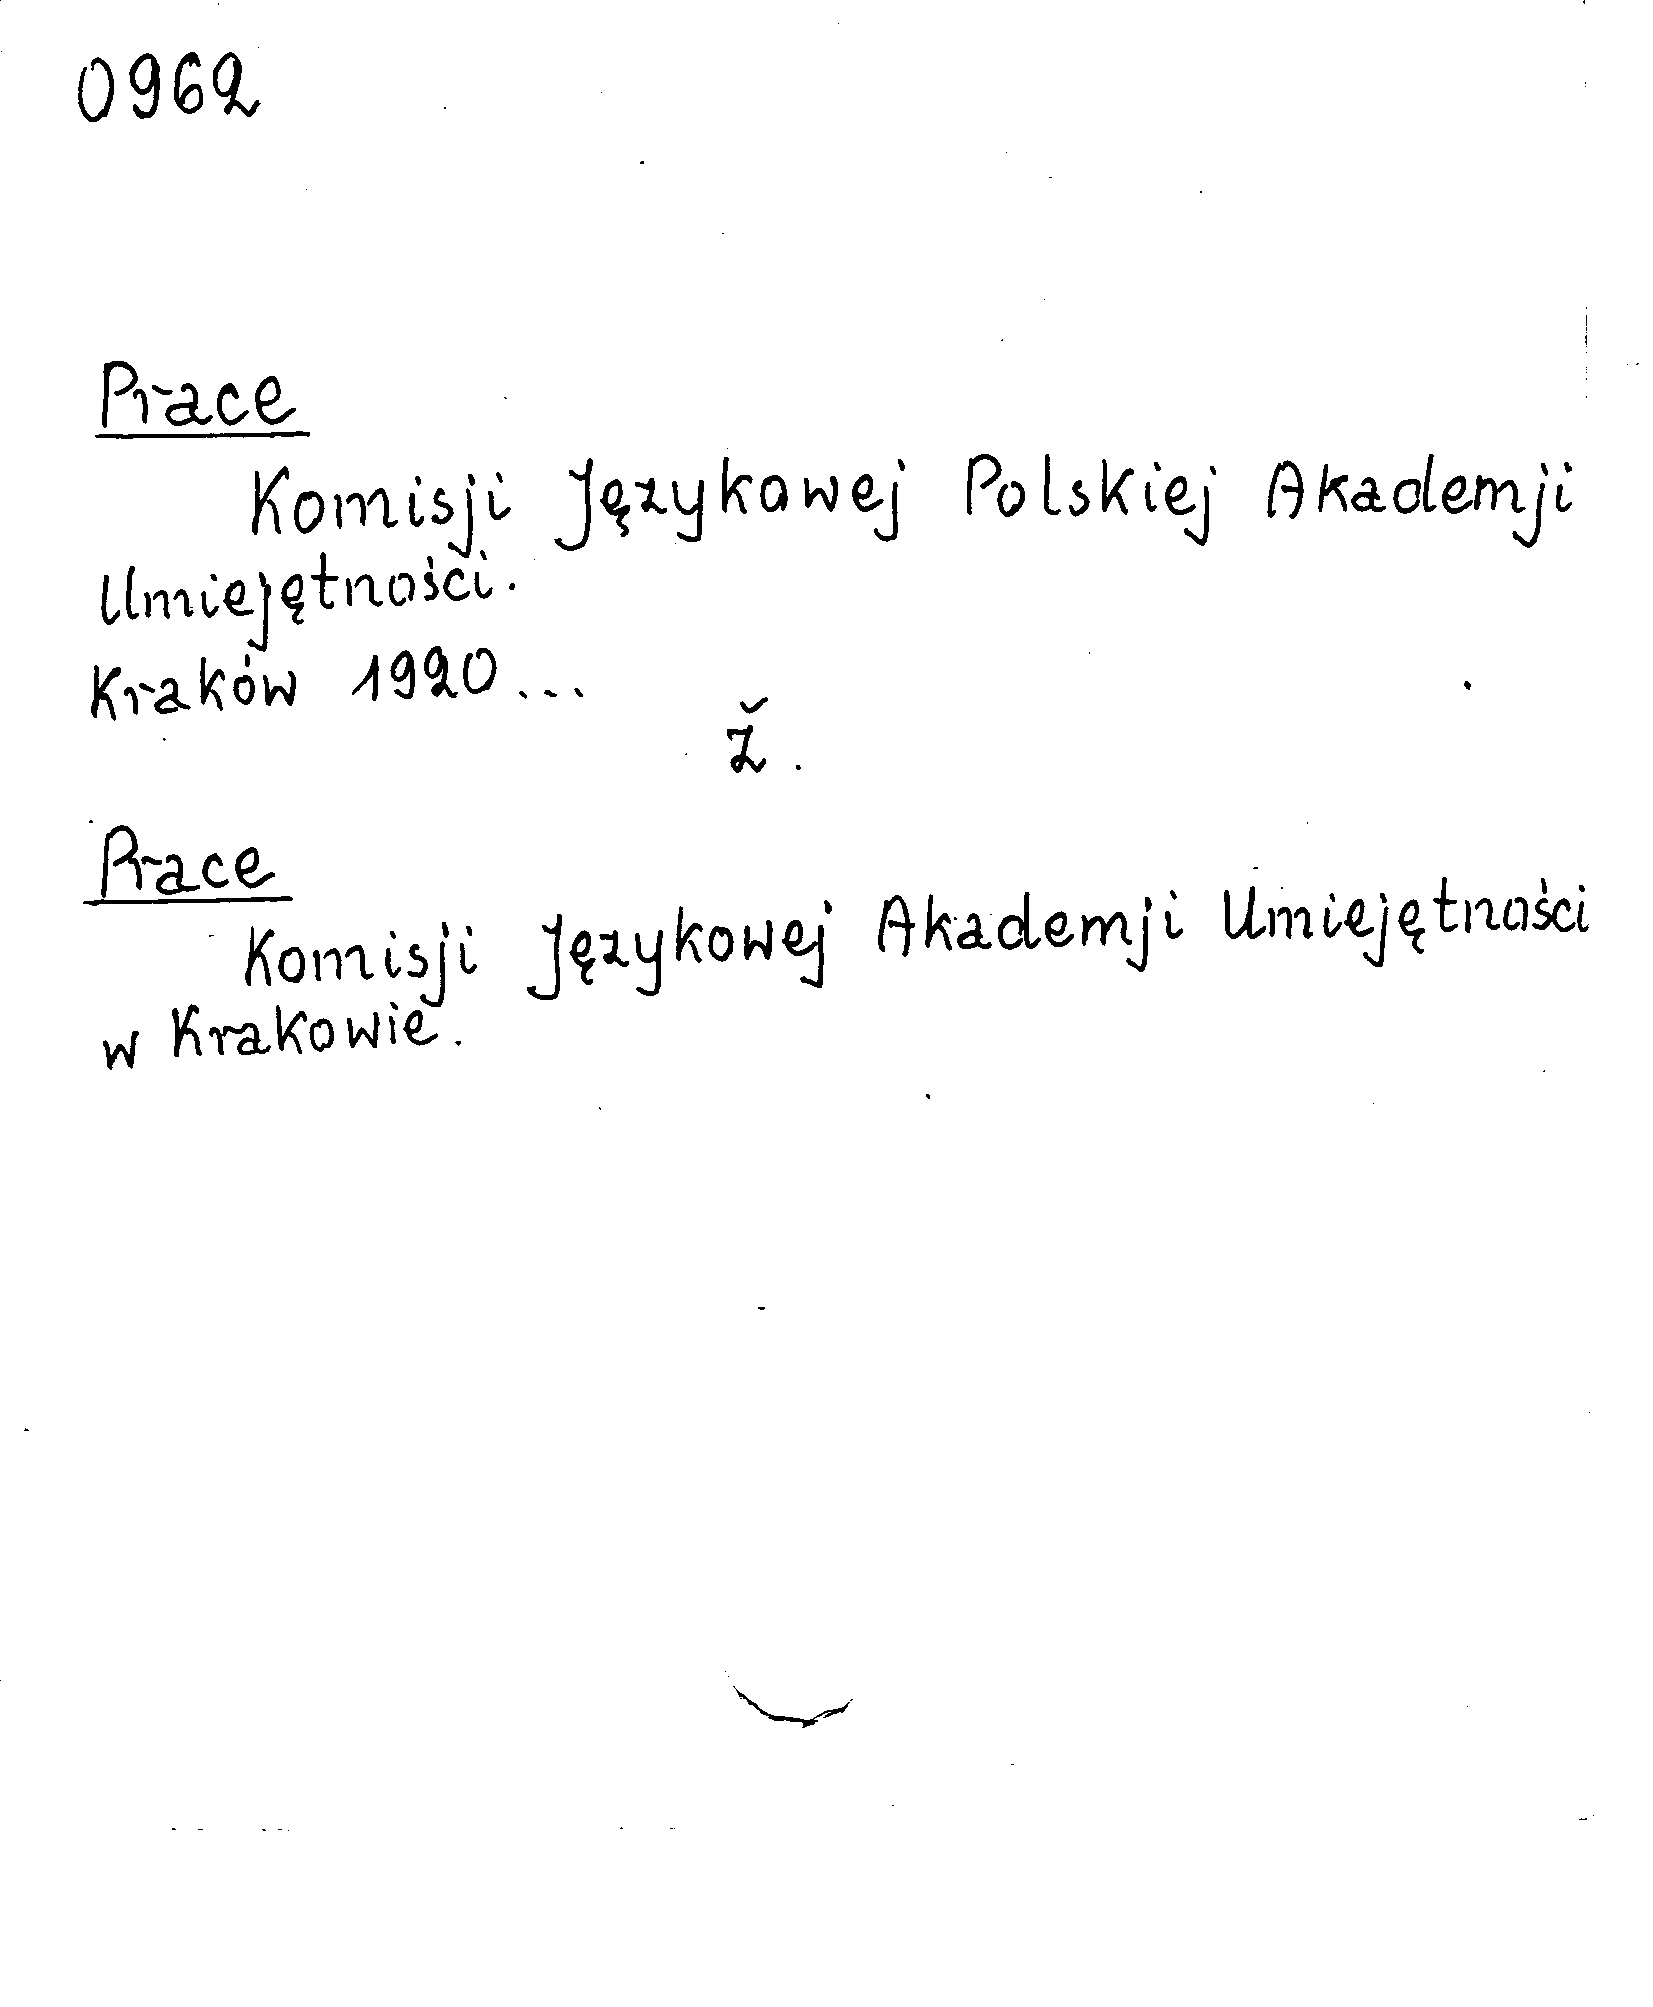 0962
Prace
Komisji Językowej Polskiej Akademji
Umiejętności.
Kraków 1920...
ž.
Prace
Komisji Językowej Akademji Umiejętności
w Krakowie.